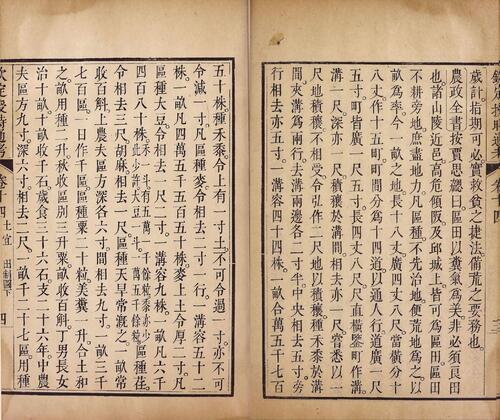 歲計指期可必實救貧之捷法備荒之要務也
農政全書按賈思勰曰區田以糞氣為美非必良田
也諸山陵近邑高危傾阪及邱城上皆可為區田區田
不耕旁地庶盡地力凡區種不先治地便荒地為之以
畝為率令一畝之地長十八丈廣四丈八尺當橫分十
八丈作十五町町間分為十四道以通人行道廣一尺
五寸町皆廣一尺五寸長四丈八尺尺直橫鑿町作溝
溝一尺深亦一尺積穰於溝間相去亦一尺嘗悉以一
尺地積穰不相受令弘作二尺地以積穰種禾黍於溝
間夾溝為兩行去溝兩邊各二寸半中央相去五寸旁
行相去亦五寸一溝容四十四株一畝合萬五千七百
五十株種禾黍令上有一寸土不可令過一寸亦不可
令減一寸凡區種麥令相去二寸一行一溝容五十二
株一畝凡四萬五千五百五十株麥上土令厚二寸凡
區種大豆令相去一尺二寸一溝容九株一畝凡六千
四百八十株禾一斗有五萬一千餘粒黍亦少此少許大豆一斗一萬五千餘粒區種荏
令相去三尺胡麻相去一尺區種天旱常溉之一畝常
收百斛上農夫區方深各六寸間相去九寸一畝三千
七百區一日作千區區種粟二十粒美糞一升合土和
之畝用種二升秋收區別三升粟畝收百斛丁男長女
治十畝十畝收千石歲食三十六石支二十六年中農
夫區方九寸深六寸相去二尺一畝千二十七區用種
欽定授時通考 卷十四 土宜 田制圖下 四